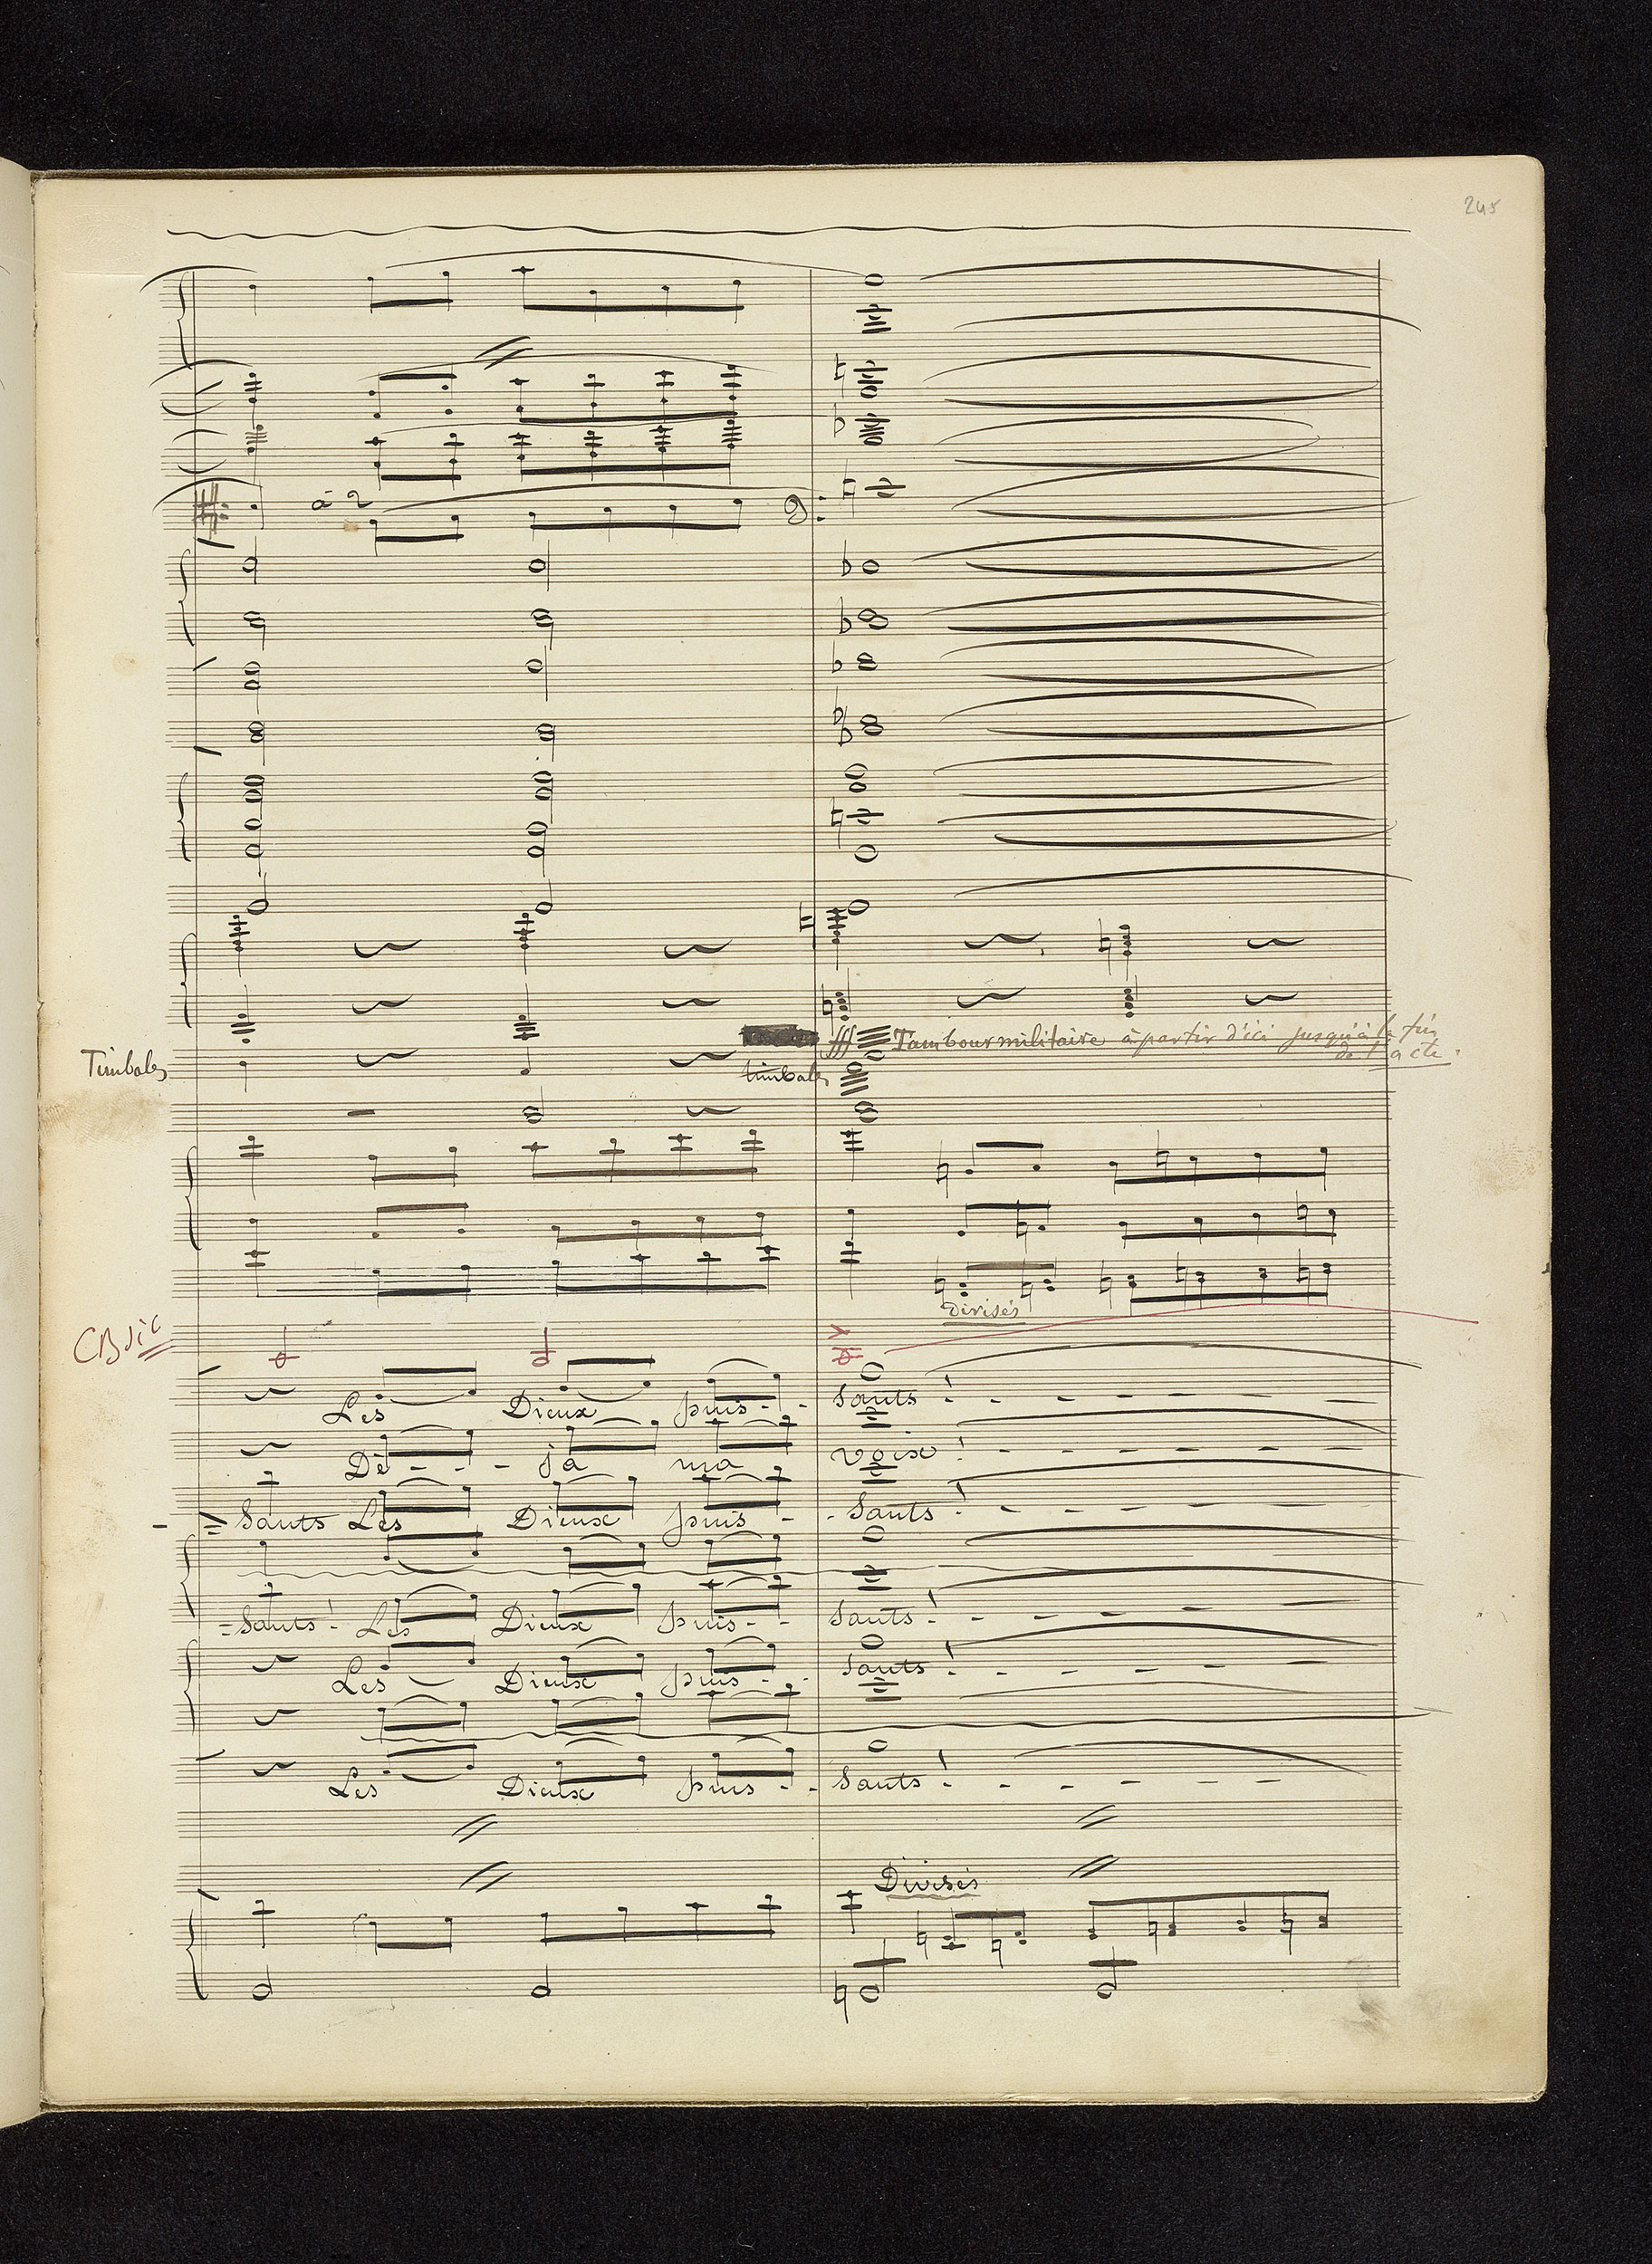 245
à 2
fff Tambour militaire à partir d'ici jusqu'à la fin
de l'acte.
Timbales
timbales
divisés
CB sic
Les Dieux puis - - sants ! - - - - -
Dé - - - jà ma voix ! - - - - - -
- sants Les Dieux puis - - sants ! - - - - -
- sants ! - Les Dieux puis - - sants ! - - - - -
Les Dieux puis - - sants ! - - - - -
Les Dieux puis - - sants ! - - - - -
Divisés